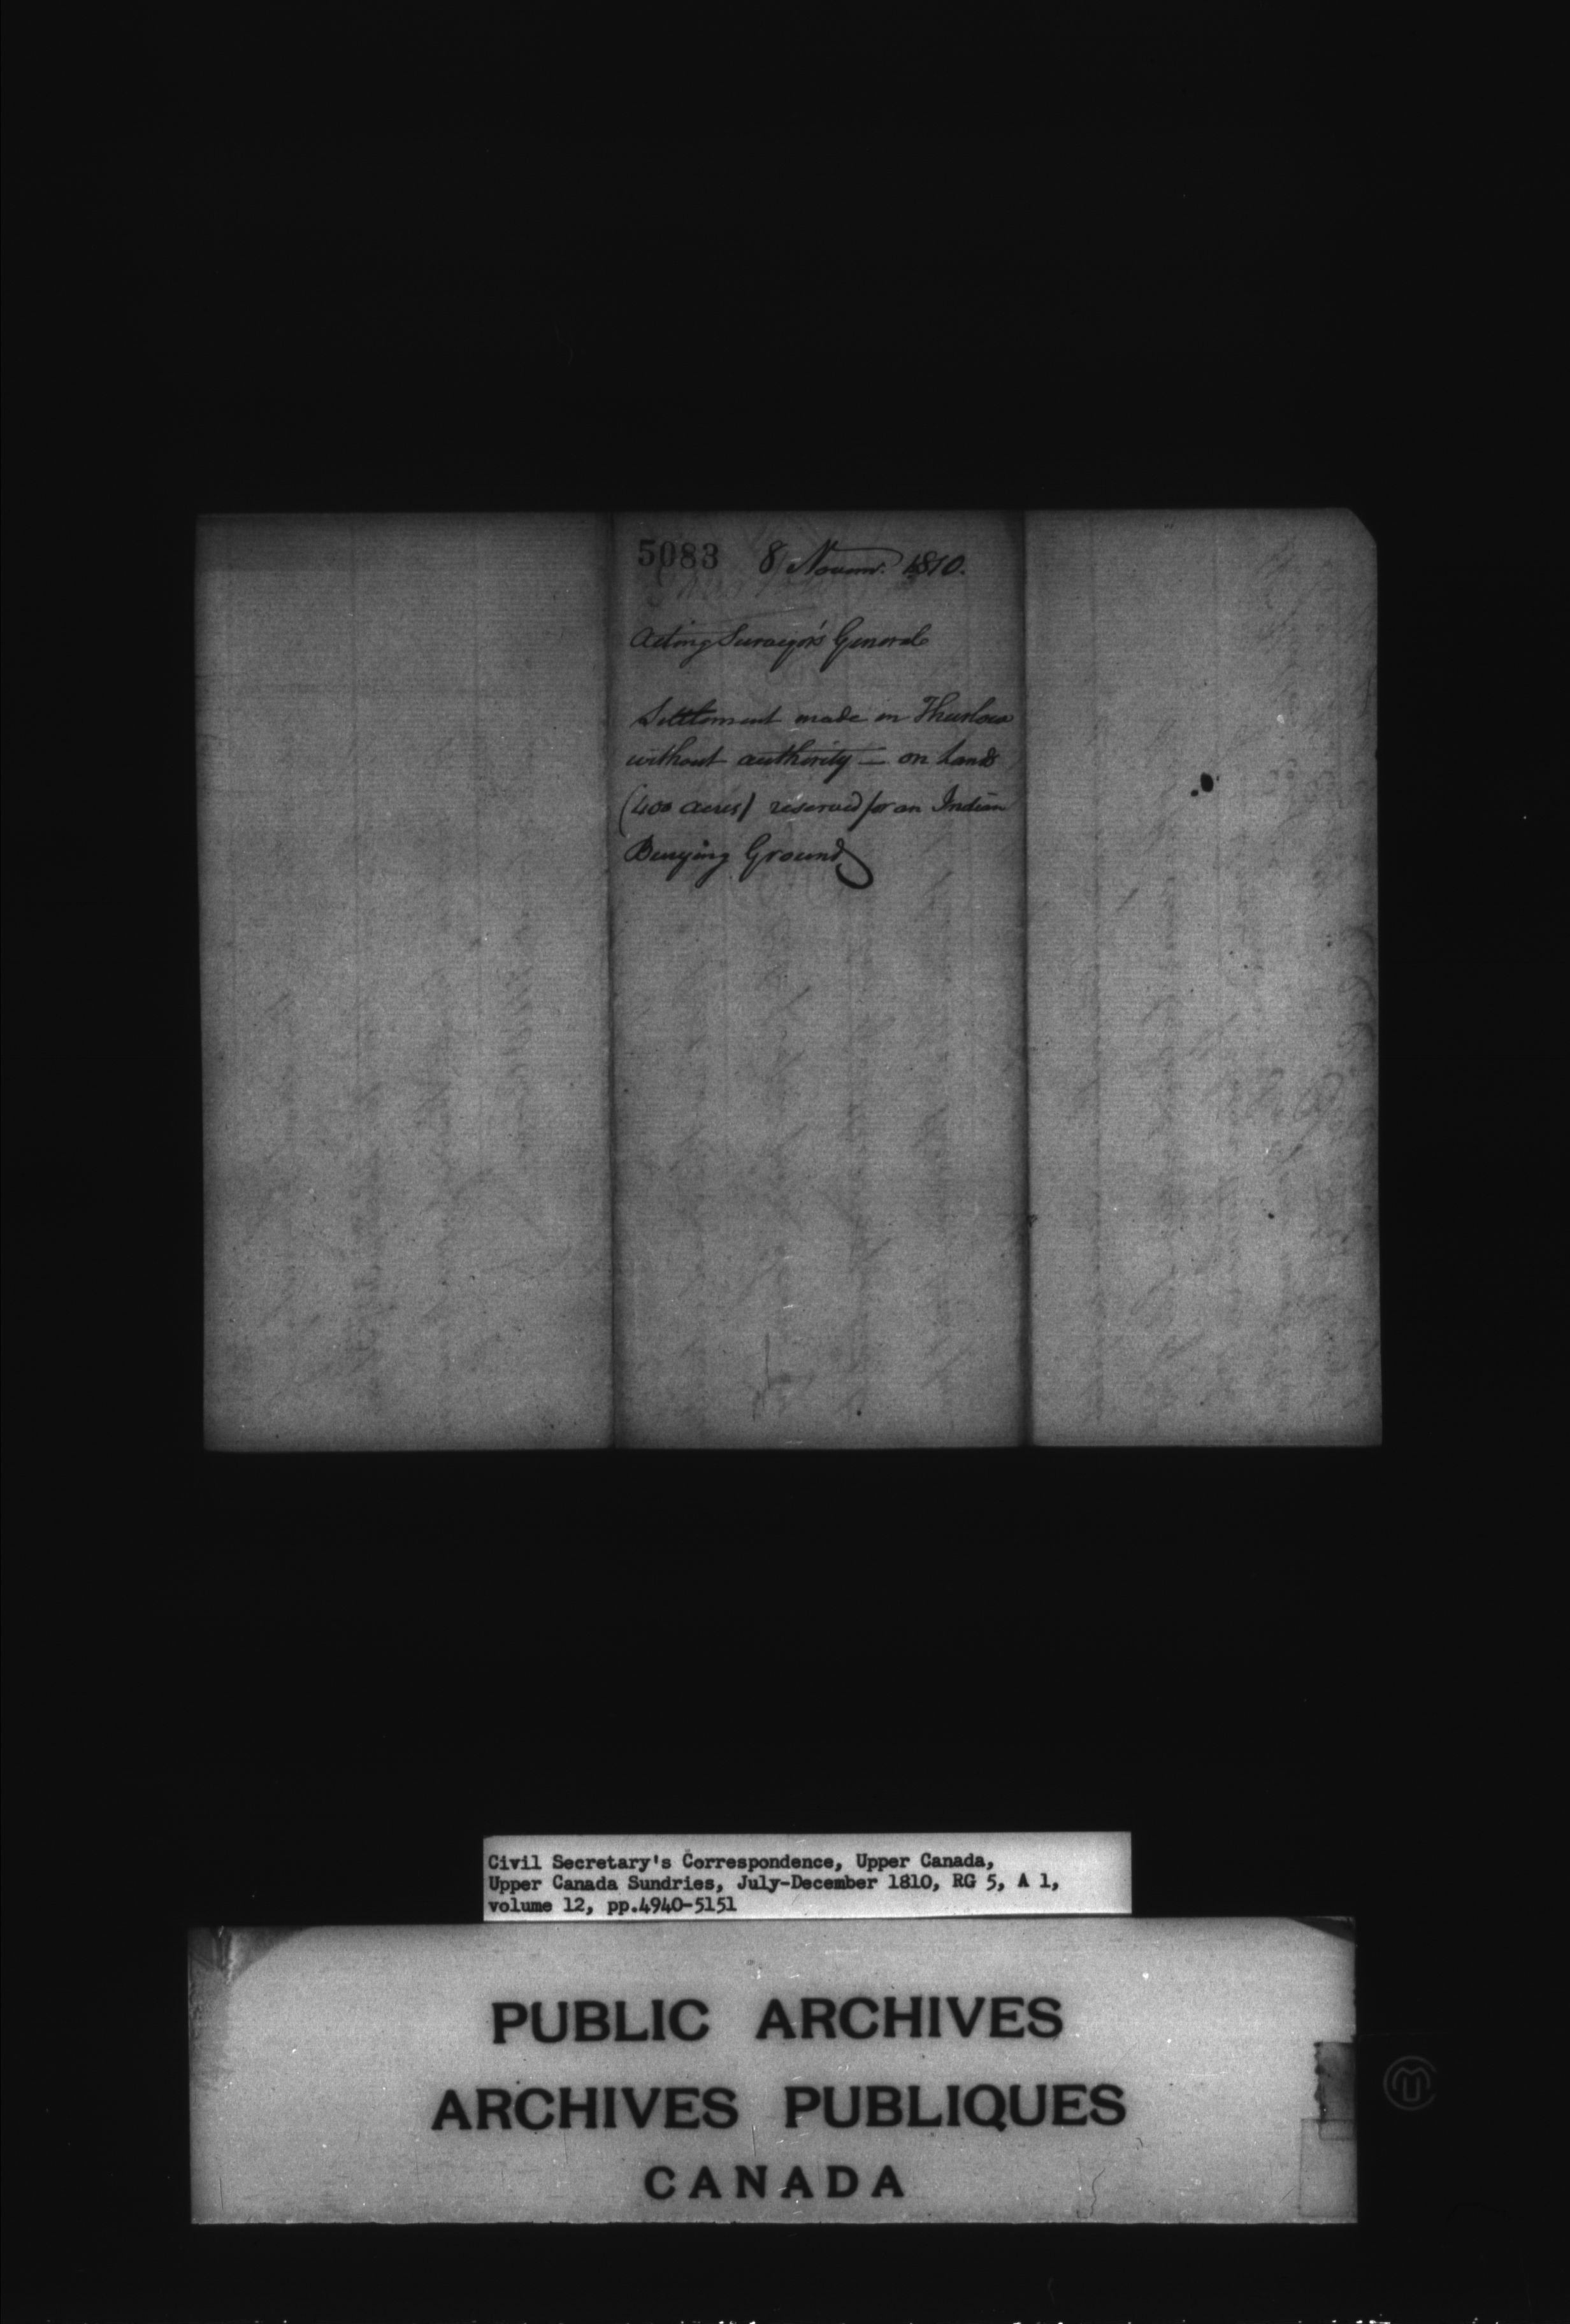 5083 8 Novemr. 1810.
Acting Surveyors General
Settlement made in Thurlow
without authority — on Lands
(400 acres) reserved for an Indian
Burying Ground
Civil Secretary's Correspondence, Upper Canada,
Upper Canada Sundries, July-December 1810, RG 5, A 1,
volume 12, pp.4940-5151
PUBLIC ARCHIVES
ARCHIVES PUBLIQUES
CANADA